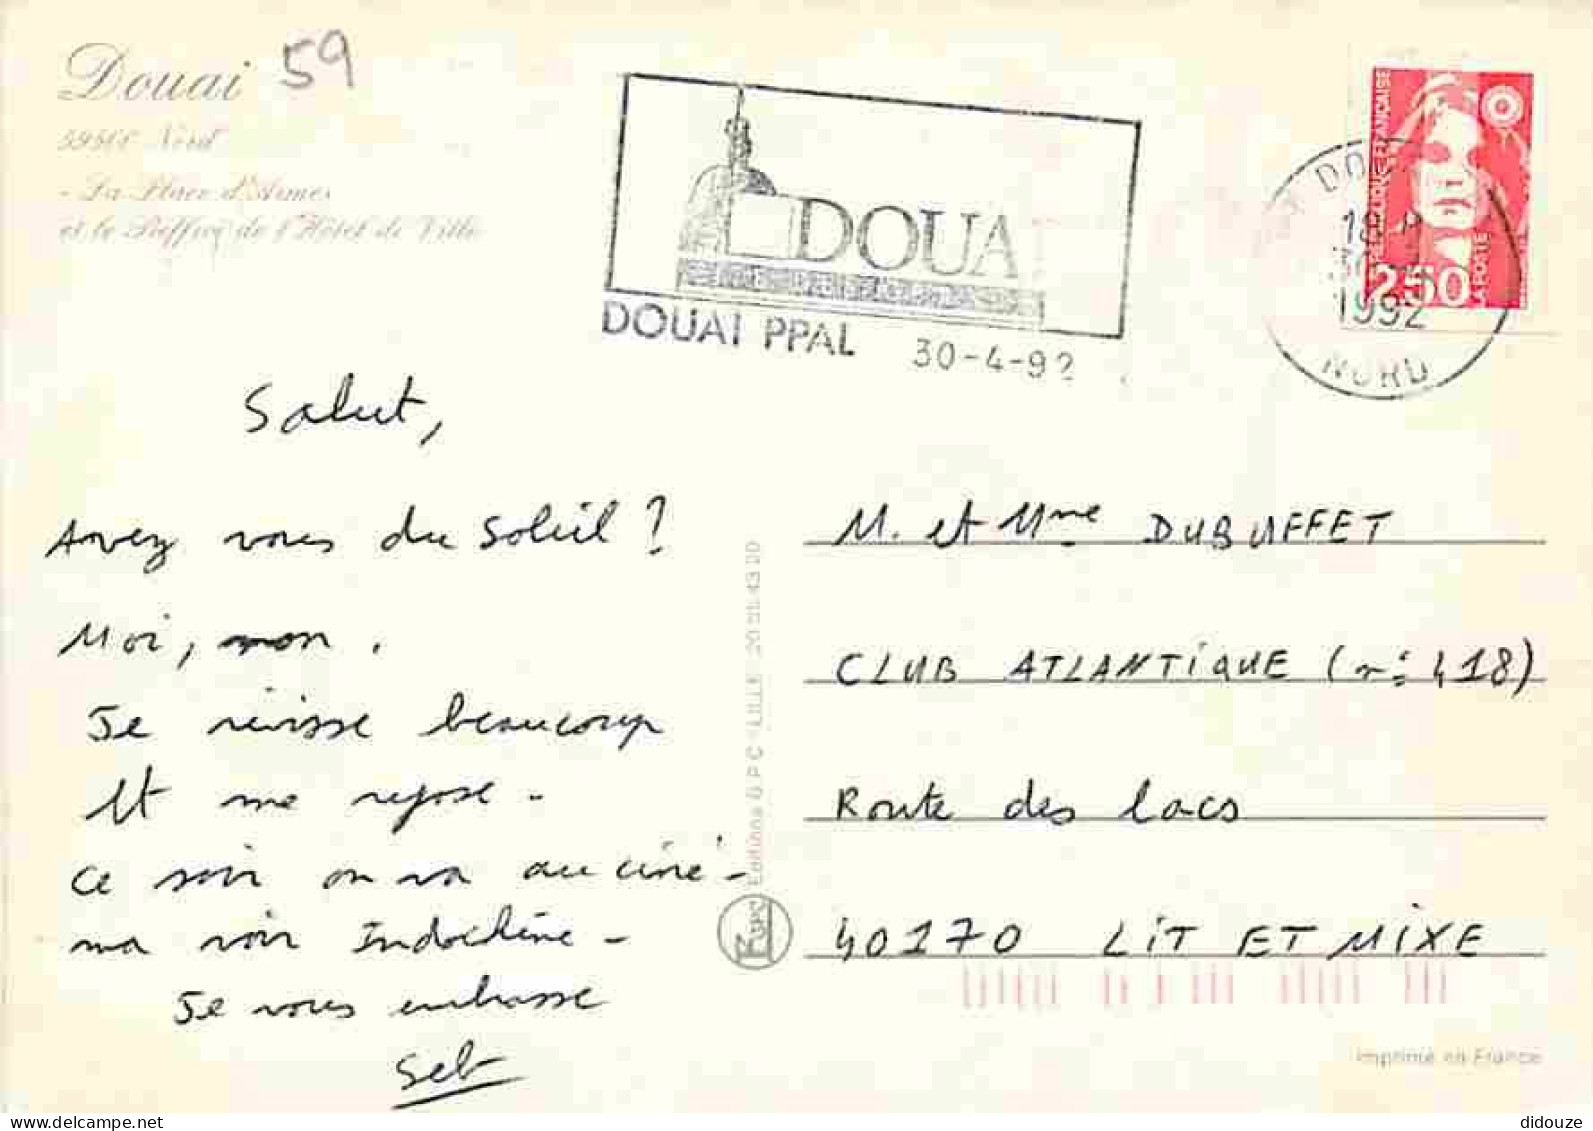 Douai 59
59500 Nord
- La Place d'Armes
et le Beffroi de l'Hôtel de Ville
DOUAI
DOUAI PPAL 30-4-92
RÉPUBLIQUE FRANÇAISE
2,50
LA POSTE
18 H
1992
NORD
Salut,
Avez vous du soleil ?
Moi, non.
Je révisse beaucoup
et me repose -
Ce soir on va au ciné-
ma voir Indochine -
Je vous embrasse
Seb
Editions
LILLE
M. et Mme DUBUFFET
CLUB ATLANTIQUE (n° 418)
Route des lacs
40170 LIT ET MIXE
Imprimé en France
delcampe.net
didouze